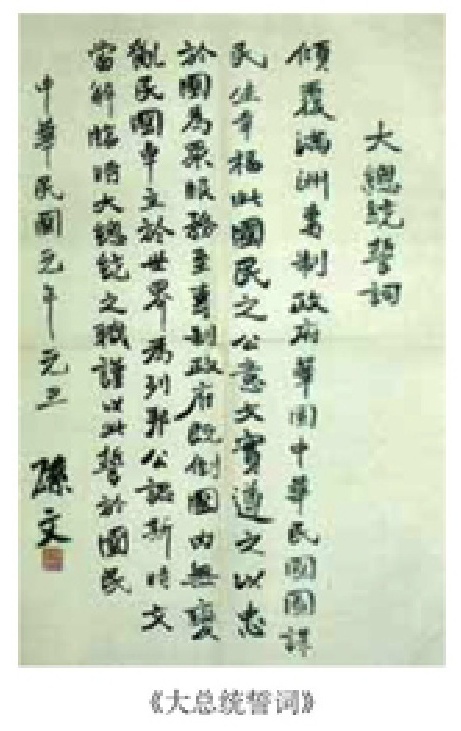 大總統誓詞
傾覆滿洲專制政府鞏固中華民國圖謀
民生幸福此國民之公意文實遵之以忠
於國為眾服務至專制政府既倒國內無變
亂民國卓立於世界為列邦公認斯時文
當解臨時大總統之職謹以此誓於國民
中華民國元年元旦 孫文
《大总统誓词》